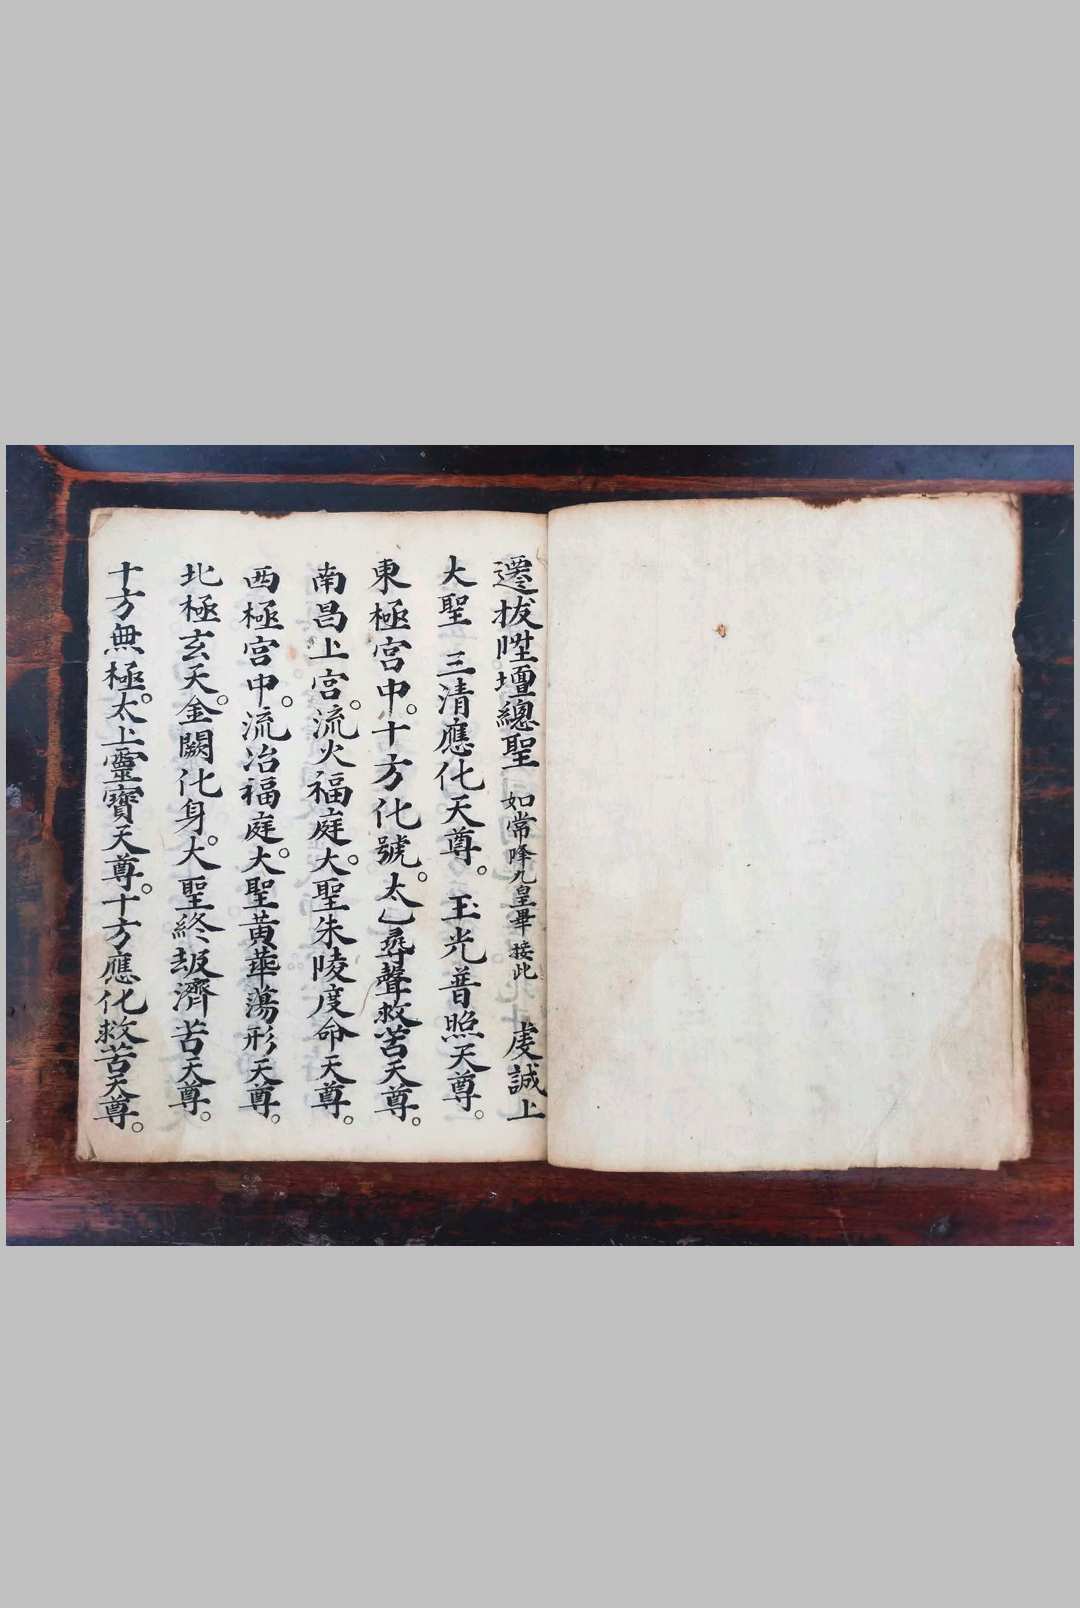 遷拔陞壇總聖 如常降九皇畢接此 虔誠上
大聖 三清應化天尊。玉光普照天尊。
東極宮中。十方化號。太乙尋聲救苦天尊。
南昌上宮。流火福庭。大聖朱陵度命天尊。
西極宮中。流冶福庭。大聖黃華蕩形天尊。
北極玄天。金闕化身。大聖終劫濟苦天尊。
十方無極。太上靈寶天尊。十方應化救苦天尊。